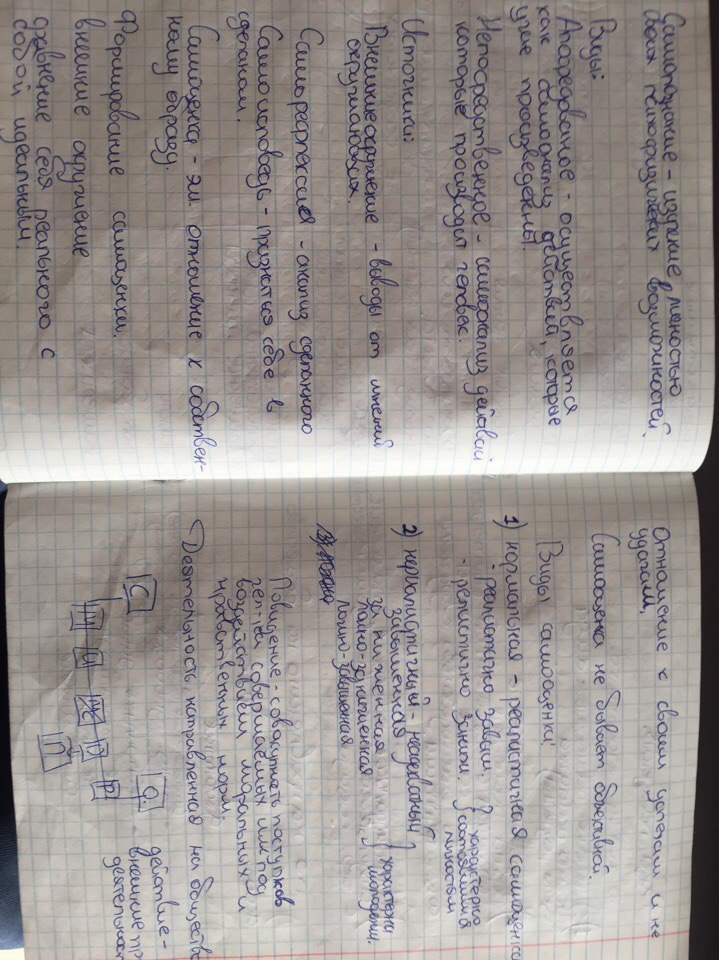 Самопознание - изучение личностью
своих психофизических возможностей.
Виды:
Апосредованое - осуществляется
как самоанализ действий, которые
уже произведены.
Непосредственное - самоанализ действий
которые производит человек.
Источники:
Внешнее окружение - выводы от мнений
окружающих.
Саморефлексия - анализ сделанного
Самоисповедь - признаться себе в
сделаном.
Самооценка - эм. отношение к собствен-
ному образу.
Формирование самооценки.
внешнее окружение
сравнение себя реального с
собой идеальным.
Отношение к своим успехам и не
удачам.
Самооценка не бывает объективной.
Виды самооценки:
1) нормальная - реалистичная самооценка
- реалистично завыш.
- реалистично заниж.
характерно
личностям
2) нереалистичный - неадекватный
завышенная
заниженная
ложно-заниженная
ложно-завышенная
характерна
Поведение - совокупность поступков
чел-ка совершаемых им под
воздействием моральных и
нравственных норм.
Деятельность направленная на общество
С
Ц
М
Р
П
О
действие -
внешние пр
деятельнос